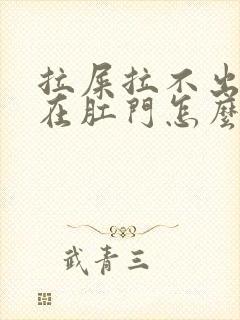 拉屎拉不出
在肚門怎麼
武青三